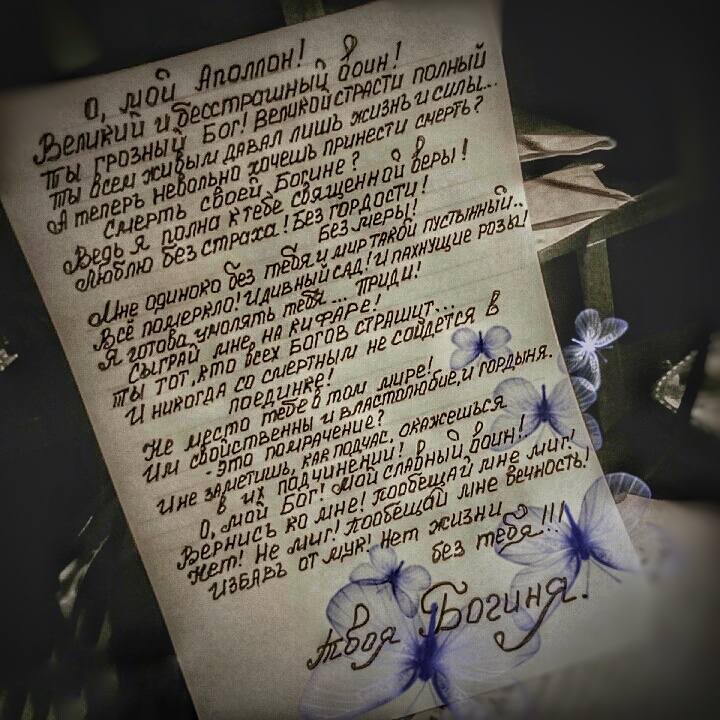 О, мой Аполлон!
Великий и бесстрашный воин!
Ты грозный Бог! Великой страсти полный
Ты всем живым давал лишь жизнь и силы...
А теперь невольно хочешь принести смерть?
Смерть своей Богине?
Ведь я полна к тебе священной веры!
Люблю без страха! Без гордости!
Без меры!
Мне одиноко без тебя и мир такой пустынный..
Всё померкло! И дивный сад! И пахнущие розы!
Я готова умолять тебя... Приди!
Сыграй мне, на кифаре!
Ты тот, кто всех Богов страшит...
И никогда со смертным не сойдется в
поединке!
Не место тебе в том мире!
Им свойственны и властолюбие, и гордыня.
- Это помрачение?
И не заметишь, как подчас, окажешься
в их подчинении!
О, мой Бог! Мой славный воин!
Вернись ко мне! Пообещай мне миг!
Нет! Не миг! Пообещай мне вечность!
Избавь от мук! Нет жизни
без тебя!!!
Твоя Богиня.